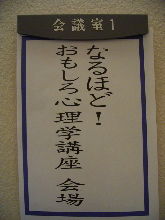 会議室1
なるほど！
おもしろ心理学講座 会場